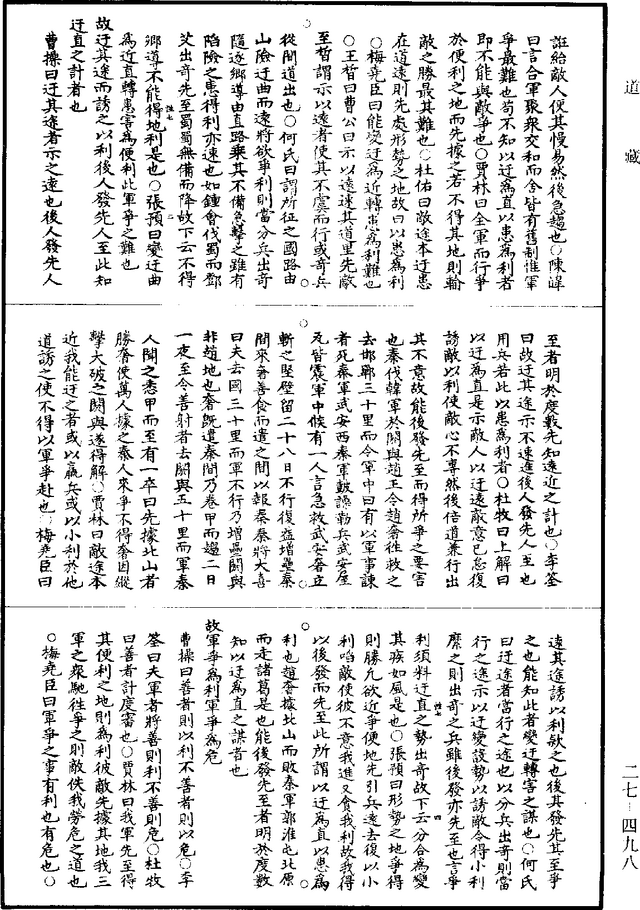 道藏
誑紿敵人使其慢易然後急趨也○陳皥
曰言合軍聚衆交和而舍皆有舊制惟軍
爭最難也苟不知以迂爲直以患爲利者
即不能與敵爭也○賈林曰全軍而行爭
於便利之地而先據之若不得其地則輸
敵之勝最其難也○杜佑曰敵途本迂患
在道遠則先處形勢之地故曰以患爲利
○梅堯臣曰能變迂爲近轉患爲利難也
○王晳曰曹公曰示以遠速其道里先敵
至晳謂示以遠者使其不虞而行或奇兵
從間道出也○何氏曰謂所征之國路由
山險迂曲而遠將欲爭利則當分兵出奇
隨逐鄉導由直路乘其不備急擊之雖有
陷險之患得利亦速也如鍾會伐蜀而鄧
艾出奇先至蜀蜀無備而降故下云不得
鄉導不能得地利是也○張預曰變迂曲
爲近直轉患害爲便利此軍爭之難也
故迂其途而誘之以利後人發先人至此知
迂直之計者也
曹操曰迂其途者示之遠也後人發先人
至者明於度數先知遠近之計也○李筌
曰故迂其途示不速進後人發先人至也
用兵若此以患爲利者○杜牧曰上解曰
以迂爲直是示敵人以迂遠敵意已怠復
誘敵以利使敵心不專然後倍道兼行出
其不意故能後發先至而得所爭之要害
也秦伐韓軍於閼與趙王令趙奢往救之
去邯鄲三十里而令軍中曰有以軍事諫
者死秦軍武安西秦軍鼓譟勒兵武安屋
瓦皆震軍中候有一人言急救武安奢立
斬之堅壁留二十八日不行復益增壘秦
間來奢善食而遣之間以報秦秦將大喜
曰夫去國三十里而軍不行乃增壘閼與
非趙地也奢既遣秦間乃卷甲而趨二日
一夜至令善射者去閼與五十里而軍秦
人聞之悉甲而至有一卒曰先據北山者
勝奢使萬人據之秦人來爭不得奢因縱
擊大破之閼與遂得解○賈林曰敵途本
近我能迂之者或以羸兵或以小利於他
道誘之使不得以軍爭赴也○梅堯臣曰
遠其途誘以利款之也後其發先其至爭
之也能知此者變迂轉害之謀也○何氏
曰迂途者當行之途也以分兵出奇則當
行之途示以迂變設勢以誘敵令得小利
縻之則出奇之兵雖後發亦先至也言爭
利須料迂直之勢出奇故下云分合爲變
其疾如風是也○張預曰形勢之地爭得
則勝凡欲近爭便地先引兵遠去復以小
利啗敵使彼不意我進又貪我利故我得
以後發而先至此所謂以迂爲直以患爲
利也趙奢據北山而敗秦軍郭淮屯北原
而走諸葛是也能後發先至者明於度數
知以迂爲直之謀者也
故軍爭爲利軍爭爲危
曹操曰善者則以利不善者則以危○李
筌曰夫軍者將善則利不善則危○杜牧
曰善者計度審也○賈林曰我軍先至得
其便利之地則爲利彼敵先據其地我三
軍之衆馳往爭之則敵佚我勞危之道也
○梅堯臣曰軍爭之事有利也有危也○
二七-四九八